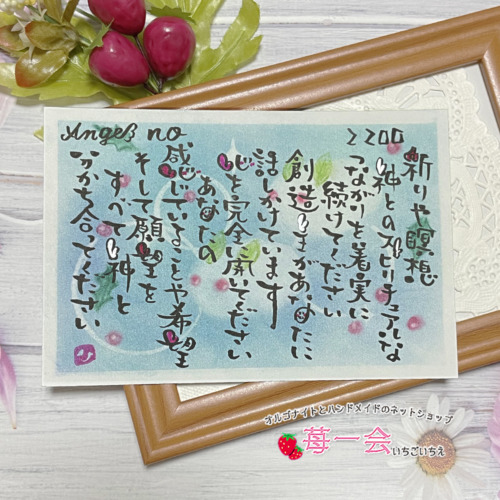 Angel no
2200
祈りや瞑想
神とのスピリチュアルな
つながりを着実に
続けてください
創造主があなたに
話しかけています
心を完全に開いてください
あなたの
感じていることや希望
そして願望を
すべて神と
分かち合ってください
オルゴナイトとハンドメイドのネットショップ
苺一会
いちごいちえ